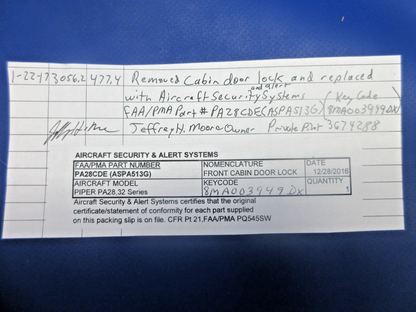 1-22-17 3056.2 477.4 Removed Cabin door lock and replaced
and alert
with Aircraft Security Systems (Key Code
FAA/PMA Part # PA28CDE (ASPA513G) 8MA003949DX)
Jeffrey H. Moore Owner Private Pilot 3674288
AIRCRAFT SECURITY & ALERT SYSTEMS
FAA/PMA PART NUMBER NOMENCLATURE DATE
PA28CDE (ASPA513G) FRONT CABIN DOOR LOCK 12/28/2016
AIRCRAFT MODEL KEYCODE QUANTITY
PIPER PA28,32 Series 8MA003949DX 1
Aircraft Security & Alert Systems certifies that the original
certificate/statement of conformity for each part supplied
on this packing slip is on file. CFR Pt 21,FAA/PMA PQ545SW